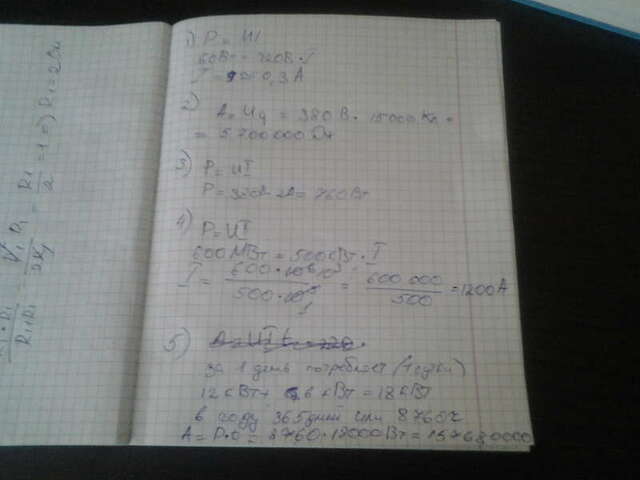 1) P = UI
60Вт = 220В · I
I = 0,3 А
2)
A = Uq = 380 В · 15000 Кл =
= 5 700 000 Дж
3) P = UI
P = 380В · 2А = 760 Вт
4)
P = UI
600 МВт = 500 кВт · I
I = 600 · 10⁶ 10³ / 500 · 10³ = 600 000 / 500 = 1200 А
5) A = UIt = 220 ·
за 1 день потребляет (1 сутки)
12 кВт + 6 кВт = 18 кВт
в году 365 дней или 8760 ч
A = P · t = 8760 · 18000 Вт = 157680000
R1 / 2 = 1 => R1 = 2 Ом